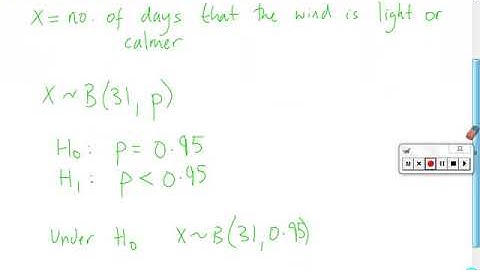 X = no. of days that the wind is light or
calmer
X ~ B(31, p)
H₀: p = 0.95
H₁: p < 0.95
Under H₀ X ~ B(31, 0.95)